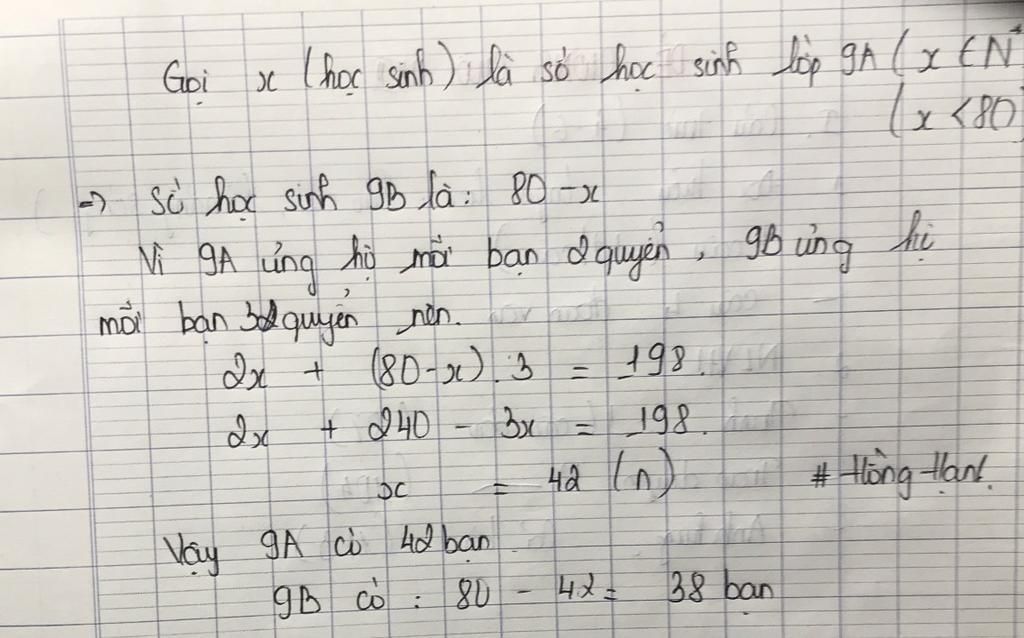 Gọi x (học sinh) là số học sinh lớp 9A ( x ∈ N*
( x < 80)
=> Số học sinh 9B là: 80 - x
Vì 9A ủng hộ mỗi bạn 2 quyển, 9B ủng hộ
mỗi bạn 3 quyển nên.
2x + (80-x). 3 = 198.
2x + 240 - 3x = 198.
x = 42 (n)
# Hồng Hạnh.
Vậy 9A có 42 bạn
9B có : 80 - 42 = 38 bạn